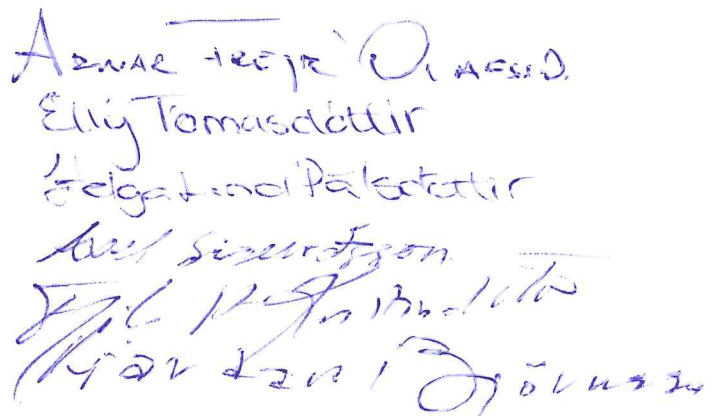 Arnar Freyr Ólafss.
Elly Tómasdóttir
Helga Lind Pálsdóttir
Axel Sigurðsson
Kjartan Björnsson